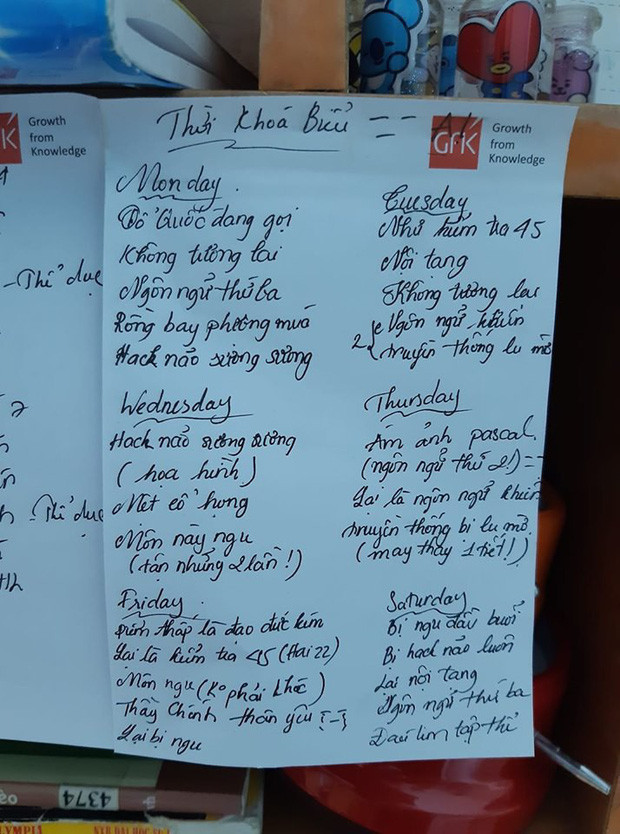 Growth
from
Knowledge
- Thể dục
- Thể dục
Thời Khoá Biểu = =
GfK
Growth
from
Knowledge
Monday
Tổ Quốc đang gọi
Không tương lai
Ngôn ngữ thứ ba
Rồng bay phượng múa
Hack não sương sương
Tuesday
Như kiểm tra 45
Nội tạng
Không tương lai
Ngôn ngữ khiến
truyền thống lu mờ
Wednesday
Hack não sương sương
(họa hình)
Mệt cổ họng
Môn này ngu
(tận những 2 lần !)
Thursday
Ám ảnh pascal.
(ngôn ngữ thứ 2!) ==
Lại là ngôn ngữ khiến
truyền thống bị lu mờ
(may thay 1 tiết!)
Friday
Điểm thấp là đạo đức kém
Lại là kiểm tra 45 (
Môn ngu (ko phải khóc)
Thầy Chánh thân yêu
Lại bị ngu
Saturday
Bị ngu đầu buổi
Bị hack não luôn
Lại nội tạng
Ngôn ngữ thứ ba
Đau tim tập thể
4374
YMPIA